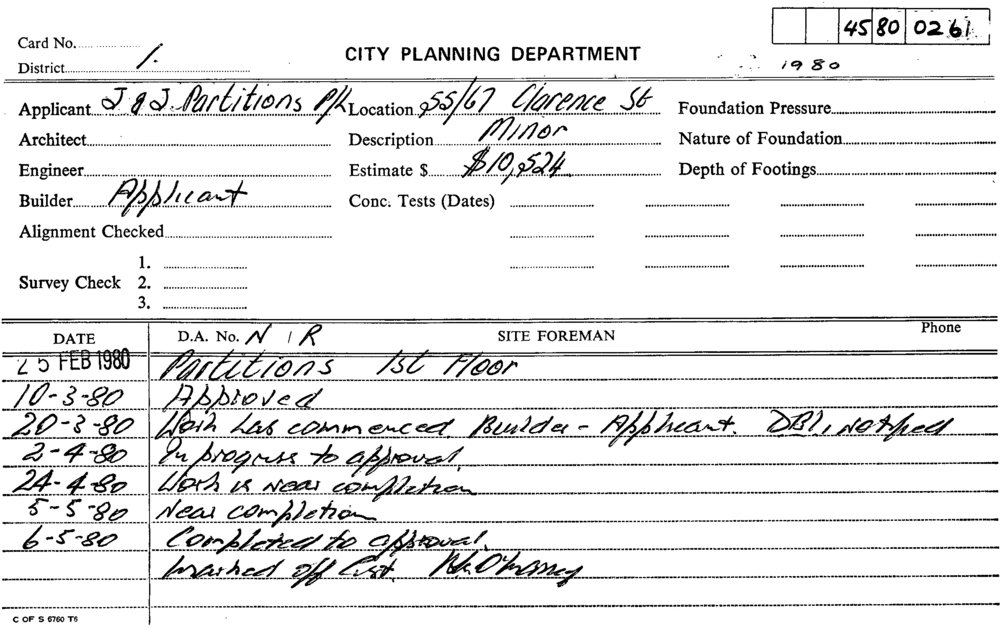 45 80 02 61
Card No.
CITY PLANNING DEPARTMENT
1980
District 1.
Applicant J & J Partitions P/L Location 55/67 Clarence St Foundation Pressure
Architect Description Minor Nature of Foundation
Engineer Estimate $ $10,524 Depth of Footings
Builder Applicant Conc. Tests (Dates)
Alignment Checked
1.
Survey Check 2.
3.
DATE D.A. No. N / R SITE FOREMAN Phone
25 FEB 1980 Partitions 1st Floor
10-3-80 Approved
20-3-80 Work has commenced. Builder - Applicant. DBI, notified
2-4-80 In progress to approval.
24-4-80 Work is near completion
5-5-80 Near completion
6-5-80 Completed to approval.
marked off List.
C OF S 6760 T6